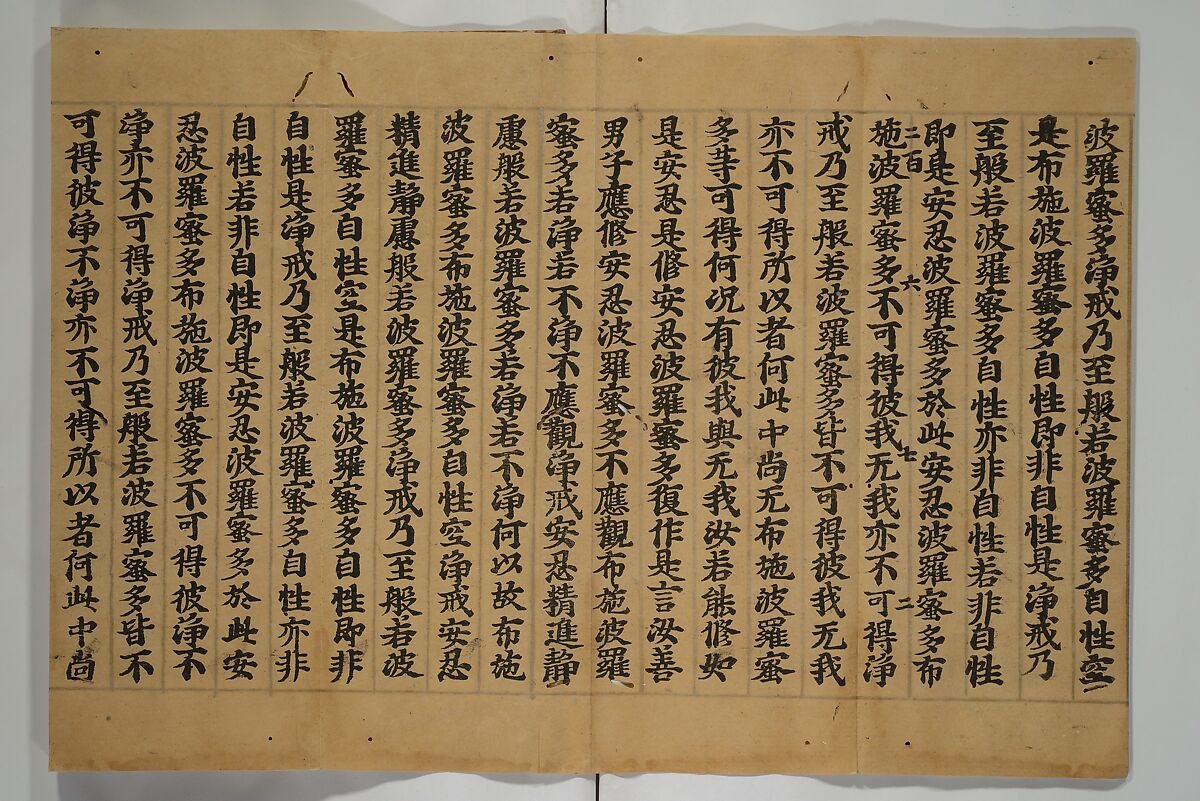 波羅蜜多淨戒乃至般若波羅蜜多自性空
是布施波羅蜜多自性即非自性是淨戒乃
至般若波羅蜜多自性亦非自性若非自性
即是安忍波羅蜜多於此安忍波羅蜜多布
二百 六 七 二
施波羅蜜多不可得彼我无我亦不可得淨
戒乃至般若波羅蜜多皆不可得彼我无我
亦不可得所以者何此中尚无布施波羅蜜
多等可得何况有彼我與无我汝若能修如
是安忍是修安忍波羅蜜多復作是言汝善
男子應修安忍波羅蜜多不應觀布施波羅
蜜多若淨若不淨不應觀淨戒安忍精進靜
慮般若波羅蜜多若淨若不淨何以故布施
波羅蜜多布施波羅蜜多自性空淨戒安忍
精進靜慮般若波羅蜜多淨戒乃至般若波
羅蜜多自性空是布施波羅蜜多自性即非
自性是淨戒乃至般若波羅蜜多自性亦非
自性若非自性即是安忍波羅蜜多於此安
忍波羅蜜多布施波羅蜜多不可得彼淨不
淨亦不可得淨戒乃至般若波羅蜜多皆不
可得彼淨不淨亦不可得所以者何此中尚